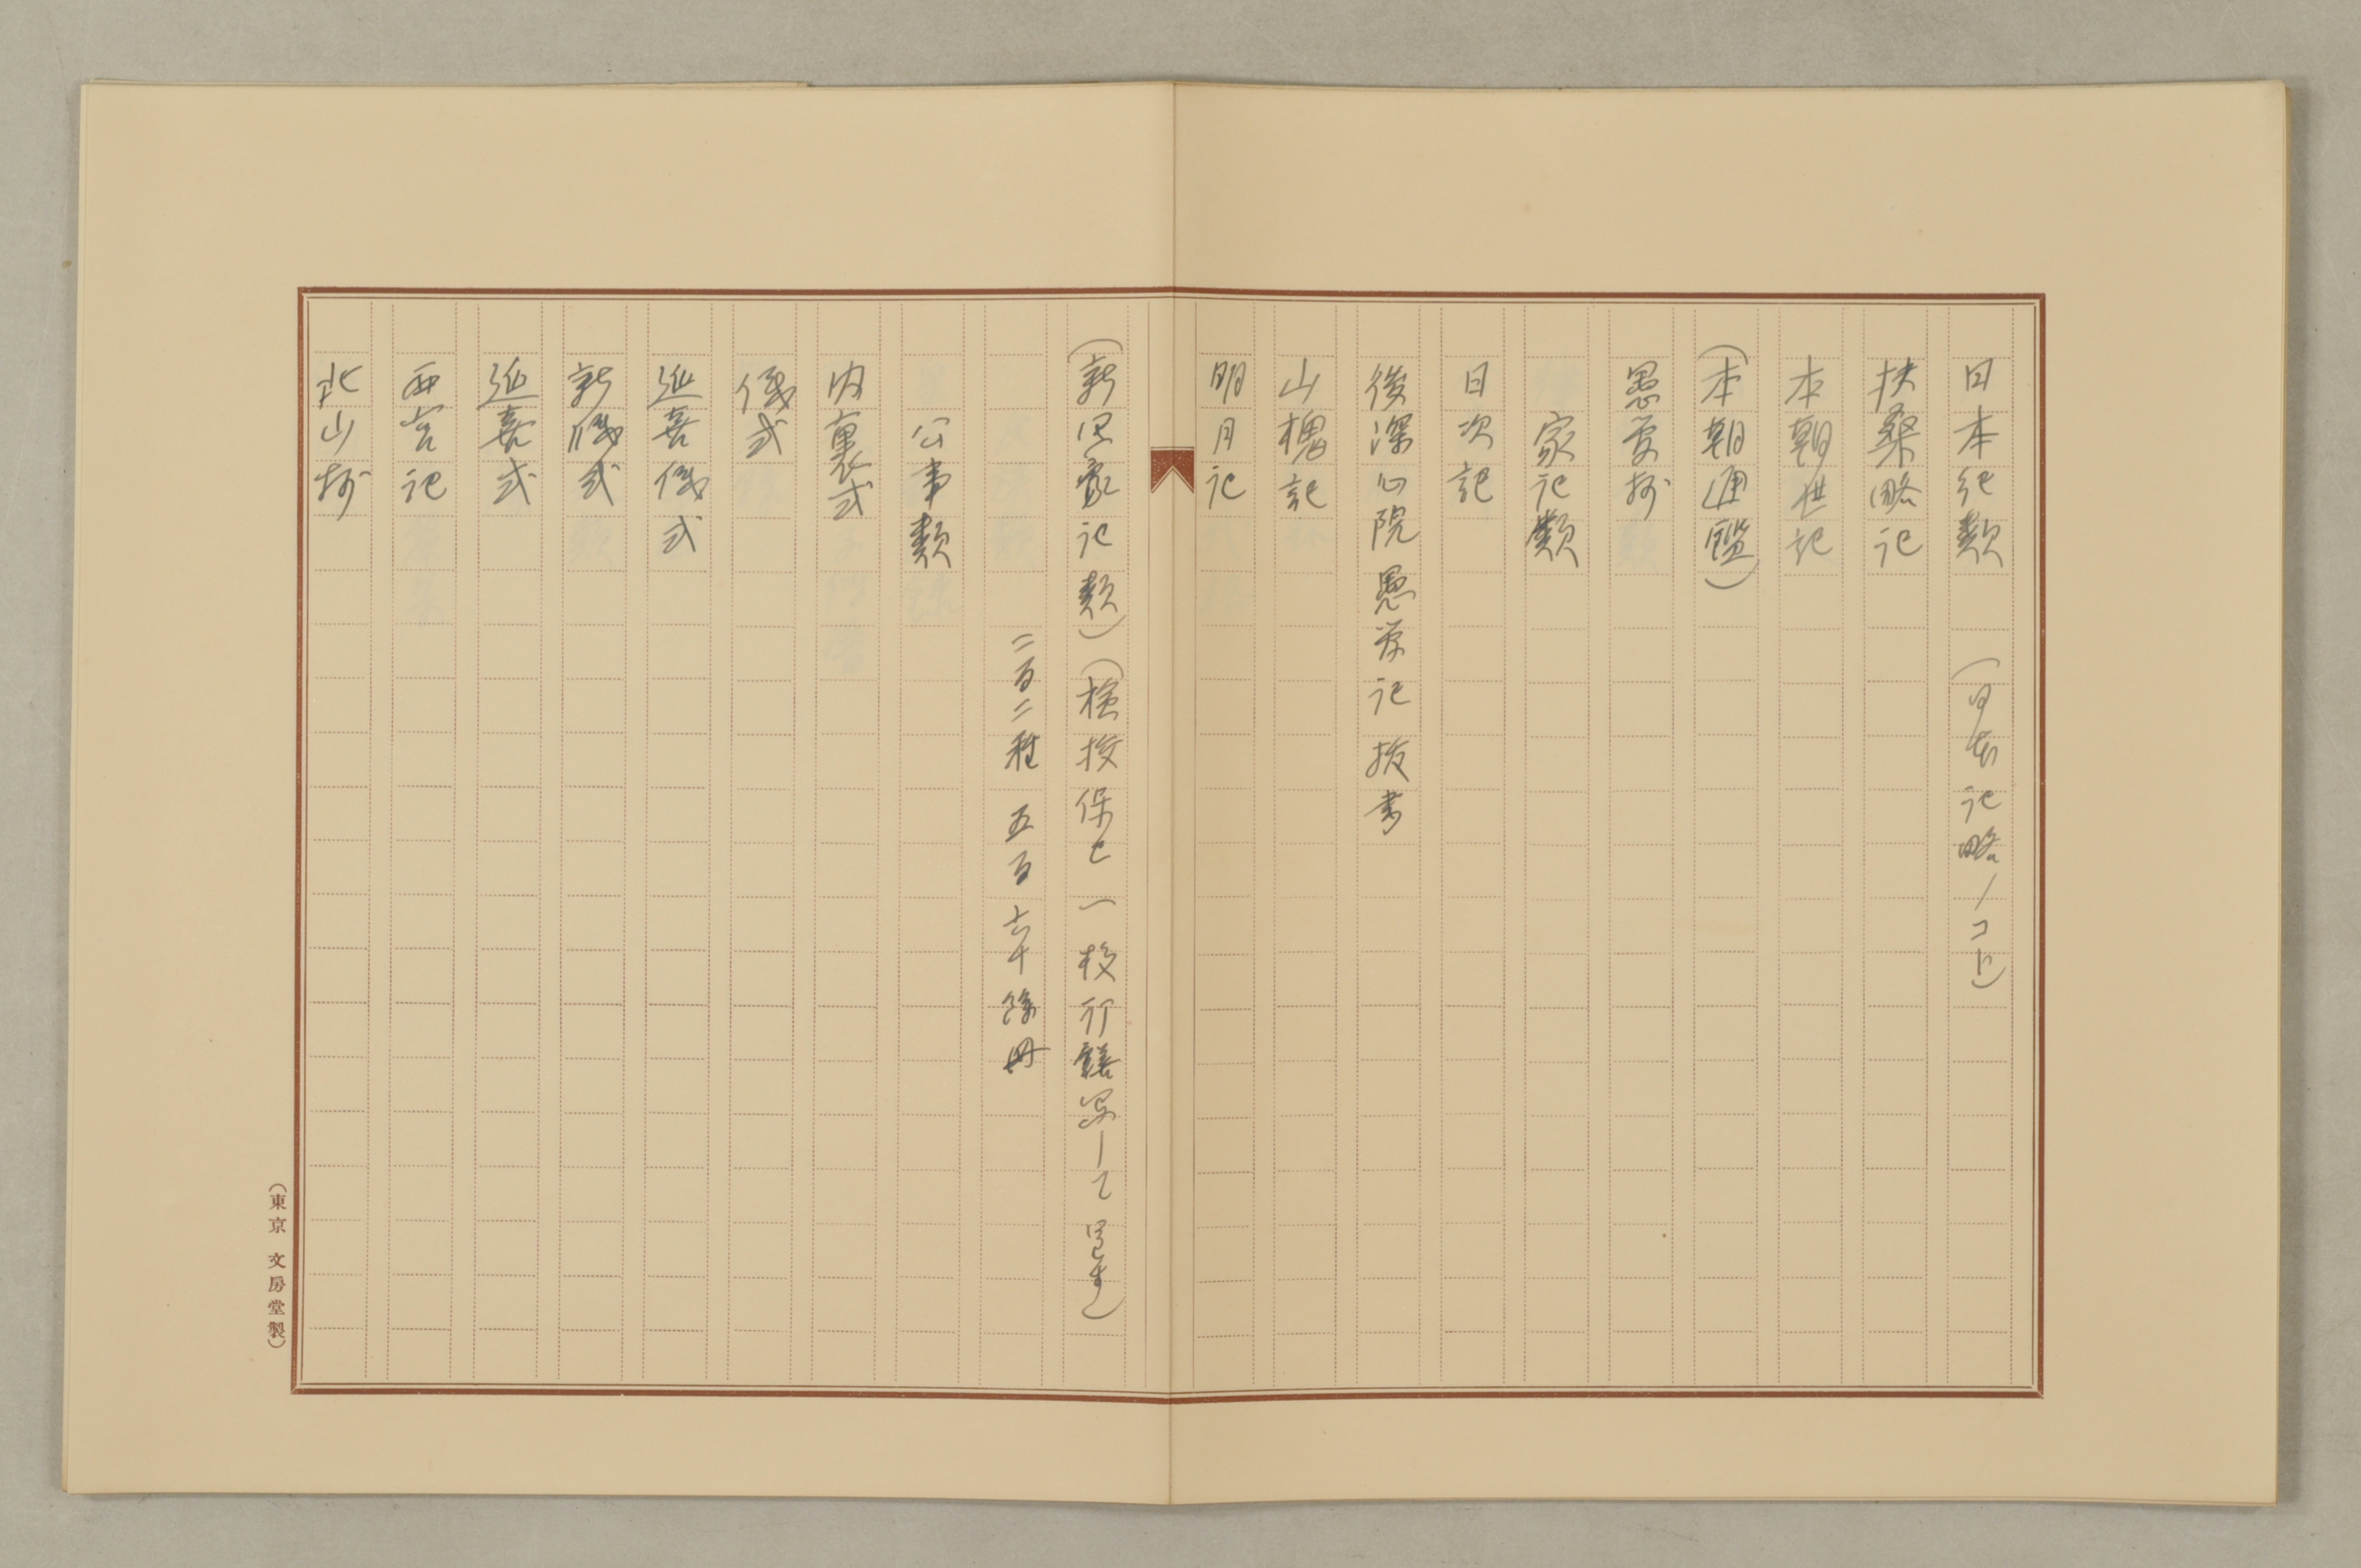 日本紀類 (日本記略ノコト)
扶桑略記
本朝世記
(本朝通鑑)
愚管抄
家記類
日次記
後深心院愚管記抜書
山槐記
明月記
(新写家記類)(検校保己一校訂繕写して
二百二種 五百六十餘冊
公事類
内裏式
儀式
延喜儀式
新儀式
延喜式
西宮記
北山抄
(東京 文房堂製)